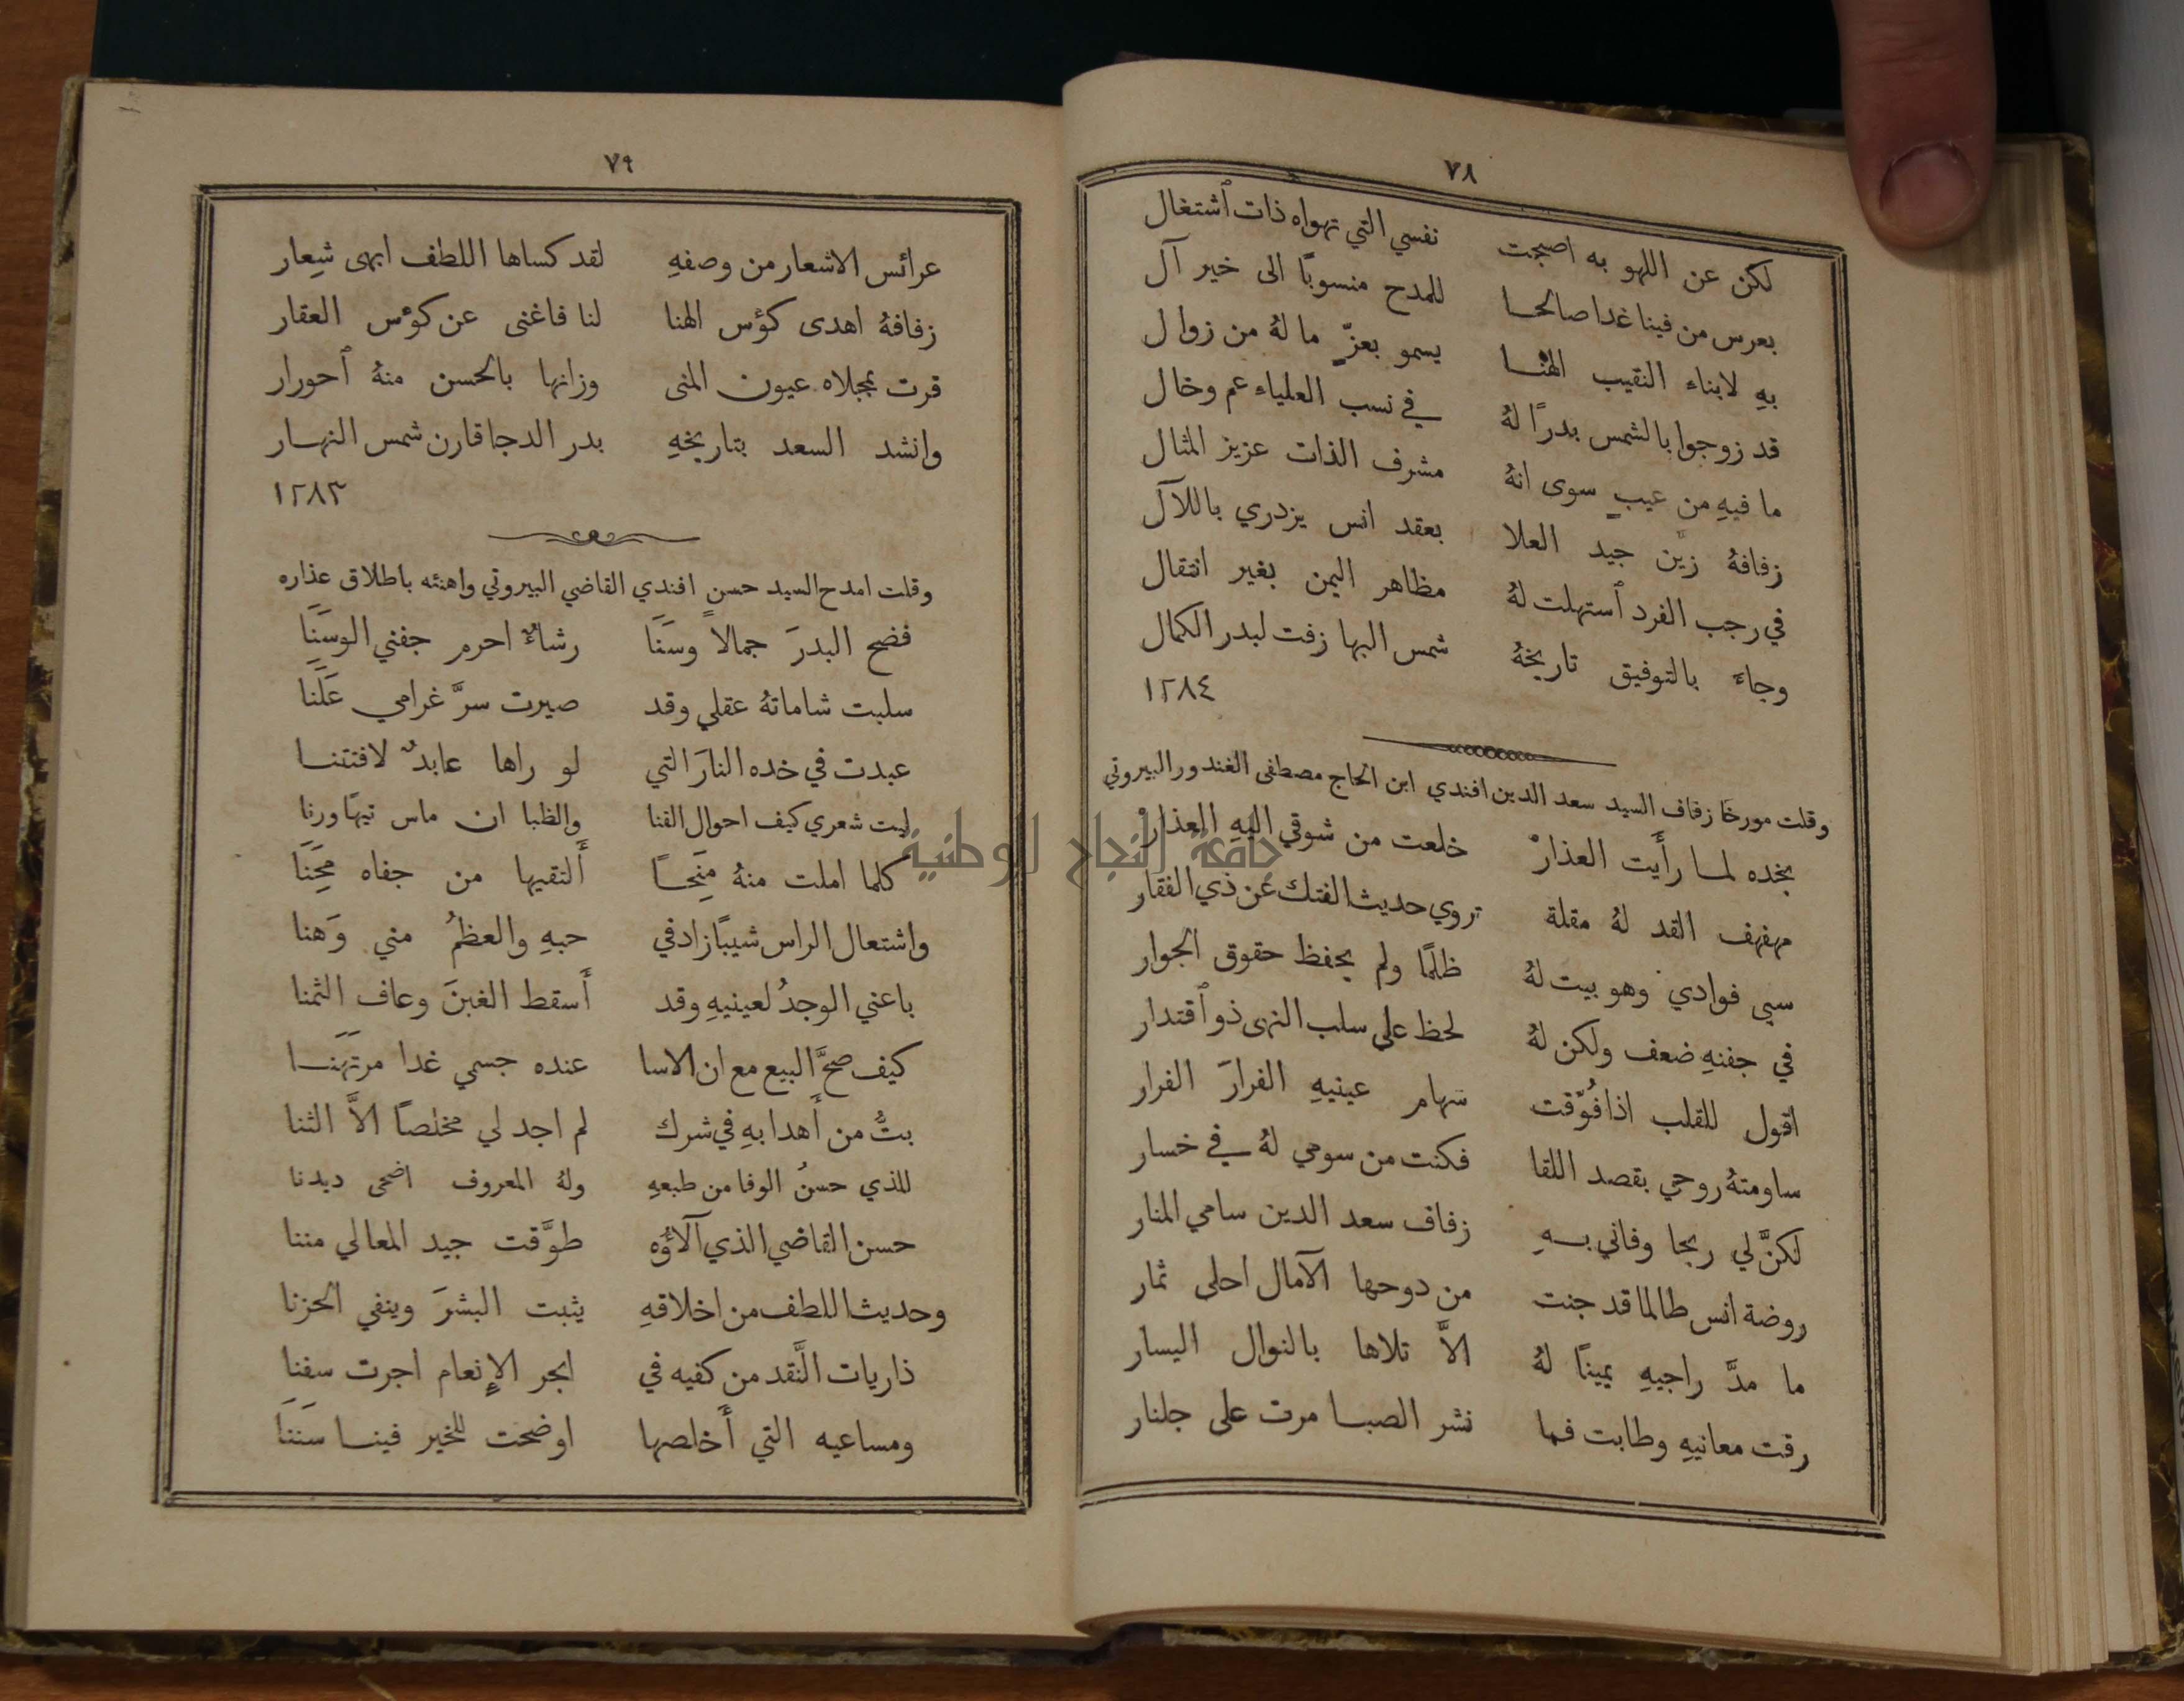 ٧٨
لكن عن اللهو به اصبحت نفسي التي تهواه ذات ٱشتغال
بعرس من فينا غدا صالحا للمدح منسوبًا الى خير آل
بهِ لابناء النقيب الهنا يسمو بعزٍّ ما لهُ من زوال
قد زوجوا بالشمس بدرًا لهُ في نسب العلياء عم وخال
ما فيهِ من عيبٍ سوى انهُ مشرف الذات عزيز المثال
زفافهُ زيَّن جيد العلا بعقد انس يزدري باللآل
في رجب الفرد ٱستهلت لهُ مظاهر اليمن بغير انتقال
وجاءَ بالتوفيق تاريخهُ شمس البها زفت لبدر الكمال
١٢٨٤
وقلت مورخا زفاف السيد سعد الدين افندي ابن الحاج مصطفى الغندور البيروتي
بخده لما رأَيت العذارْ خلعت من شوقي اليهِ العذارْ
مهفهف القد لهُ مقلة تروي حديث الفتك عن ذي الفقار
سبي فوادي وهو بيت لهُ ظلمًا ولم يحفظ حقوق الجوار
في جفنهِ ضعف ولكن لهُ لحظ على سلب النهى ذو ٱقتدار
اقول للقلب اذا فُوّقت سهام عينيهِ الفرارَ الفرار
ساومتهُ روحي بقصد اللقا فكنت من سومي لهُ في خسار
لكنَّ لي ربحا وفاني بهِ زفاف سعد الدين سامي المنار
روضة انس طالما قد جنت من دوحها الآمال احلى ثمار
ما مدَّ راجيهِ يمينًا لهُ الاَّ تلاها بالنوال اليسار
رقت معانيهِ وطابت فما نشر الصبا مرت على جلنار
٧٩
عرائس الاشعار من وصفهِ لقد كساها اللطف ابهى شِعار
زفافهُ اهدى كؤس الهنا لنا فاغنى عن كوٴس العقار
قرت بمجلاه عيون المنى وزانها بالحسن منهُ ٱحورار
وانشد السعد بتاريخهِ بدر الدجا قارن شمس النهار
١٢٨٣
وقلت امدح السيد حسن افندي القاضي البيروتي واهنئه باطلاق عذاره
فضح البدرَ جمالاً وسَنَا رشاءٌ احرم جفني الوسَنَا
سلبت شاماتهُ عقلي وقد صيرت سرَّ غرامي عَلَنا
عبدت في خده النارَ التي لو راها عابدٌ لافتتنا
ليت شعري كيف احوال الفنا والظبا ان ماس تيهًا ورنا
كلما املت منهُ مِنَحًا أَلتقيها من جفاه مِحَنَا
واشتعال الراس شيبًا زاد في حبهِ والعظمُ مني وَهنا
باعني الوجدُ لعينيهِ وقد أَسقط الغبنَ وعاف الثمنا
كيف صحَّ البيع مع ان الاسا عنده جسمي غدا مرتَهَنا
بتُّ من أَهدابهِ في شرك لم اجد لي مخلصًا الاَّ الثنا
للذي حسنُ الوفا من طبعهِ ولهُ المعروف اضحى ديدنا
حسن القاضي الذي آلاؤُه طوَّقت جيد المعالي مننا
وحديث اللطف من اخلاقهِ يثبت البشرَ وينفي الحزنا
ذاريات النَّقد من كفيه في ابحر الإِنعام اجرت سفنا
ومساعيه التي أَخلصها اوضحت للخير فينا سَنَنَا
جامعة النجاح الوطنية